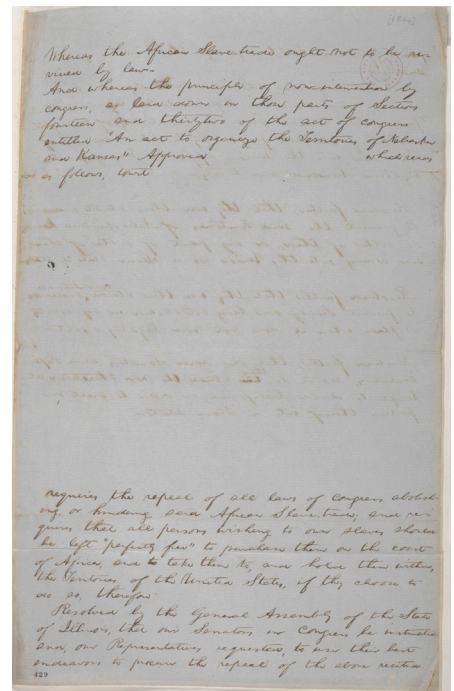 [1854]
Whereas the African Slave-trade ought not to be re-
vived by law-
And whereas the principle of non-intervention by
Congress, as laid down in those parts of Sections
fourteen and thirtytwo of the act of Congress
entitled "An act to organize the Territories of Nebraska
and Kansas" Approved which reads
as follows, towit
requires the repeal of all laws of Congress abolish-
ing, or hindering said African Slave-trade, and re-
quires that all persons wishing to own slaves should
be left "perfectly free" to purchase them on the coast
of Africa, and to take them to, and hold them within,
the Teritories of the United States, if they choose to
do so, therefore
Resolved by the General Assembly of the State
of Illinois, that our Senators in Congress be instructed
and, our Representatives requested, to use their best
endeavors to procure the repeal of the above recited
429